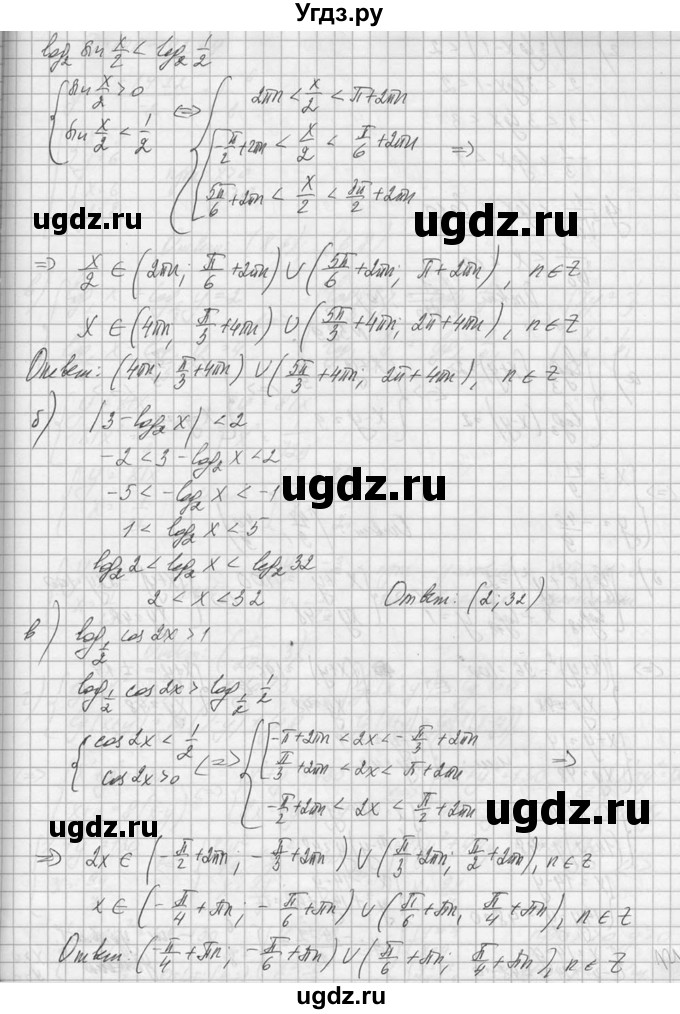 Угдз.ру
log₂ sin x/2 < log₂ 1/2
{ sin x/2 > 0 ; sin x/2 < 1/2 <=> { 2πn < x/2 < π+2πn ; [ -π/2+2πn < x/2 < π/6+2πn ; 5π/6+2πn < x/2 < 3π/2+2πn =>
ugdz.ru ugdz.ru
=> x/2 ∈ (2πn; π/6+2πn) ∪ (5π/6+2πn; π+2πn), n ∈ Z
x ∈ (4πn, π/3+4πn) ∪ (5π/3+4πn; 2π+4πn), n ∈ Z
Ответ: (4πn; π/3+4πn) ∪ (5π/3+4πn; 2π+4πn), n ∈ Z
б) |3-log₂ x| < 2
-2 < 3-log₂ x < 2
-5 < -log₂ x < -1
ugdz.ru
1 < log₂ x < 5
log₂ 2 < log₂ x < log₂ 32
2 < x < 32 Ответ: (2; 32)
в) log_1/2 cos 2x > 1
log_1/2 cos 2x > log_1/2 1/2
{ cos 2x < 1/2 ; cos 2x > 0 <=> { [ -π+2πn < 2x < -π/3+2πn ; π/3+2πn < 2x < π+2πn ; -π/2+2πn < 2x < π/2+2πn =>
ugdz.ru ugdz.ru
=> 2x ∈ (-π/2+2πn; -π/3+2πn) ∪ (π/3+2πn; π/2+2πn), n ∈ Z
x ∈ (-π/4+πn; -π/6+πn) ∪ (π/6+πn, π/4+πn), n ∈ Z
Ответ: (-π/4+πn; -π/6+πn) ∪ (π/6+πn; π/4+πn), n ∈ Z
ugdz.ru